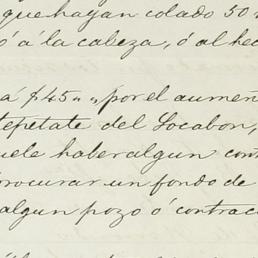 que hagan colado 50
ó á la cabeza, ó al hec
á $45,, por el aumen
tepetate del Socabon,
uele haber algun cont
procurar un fondo de
algun pozo ó contrac